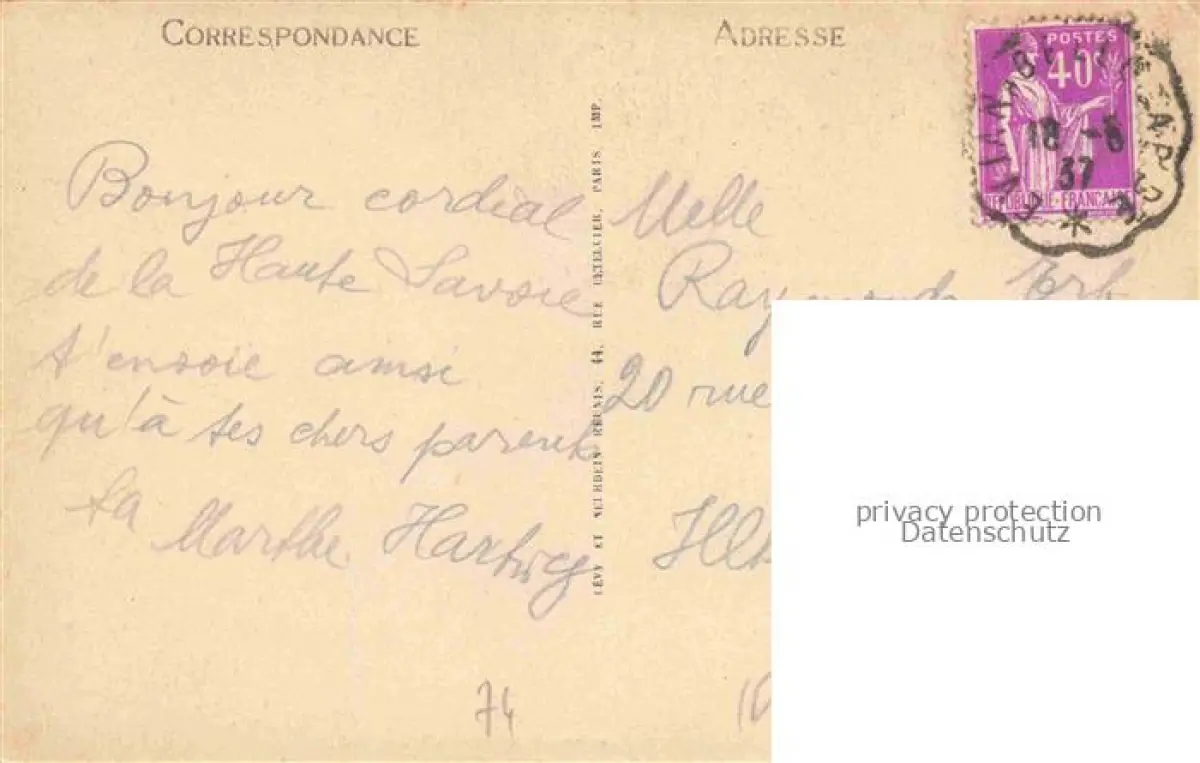 CORRESPONDANCE
ADRESSE
POSTES
40c
18 -8
37
RÉPUBLIQUE FRANÇAISE
Bonjour cordial
de la Haute Savoie
t'envoie ainsi
qu'à tes chers parents
ta
Marthe Hartwig
LÉVY ET NEURDEIN RÉUNIS, 44, RUE LETELLIER, PARIS IMP.
Melle
Raymonde Erb
20 rue
74
privacy protection
Datenschutz